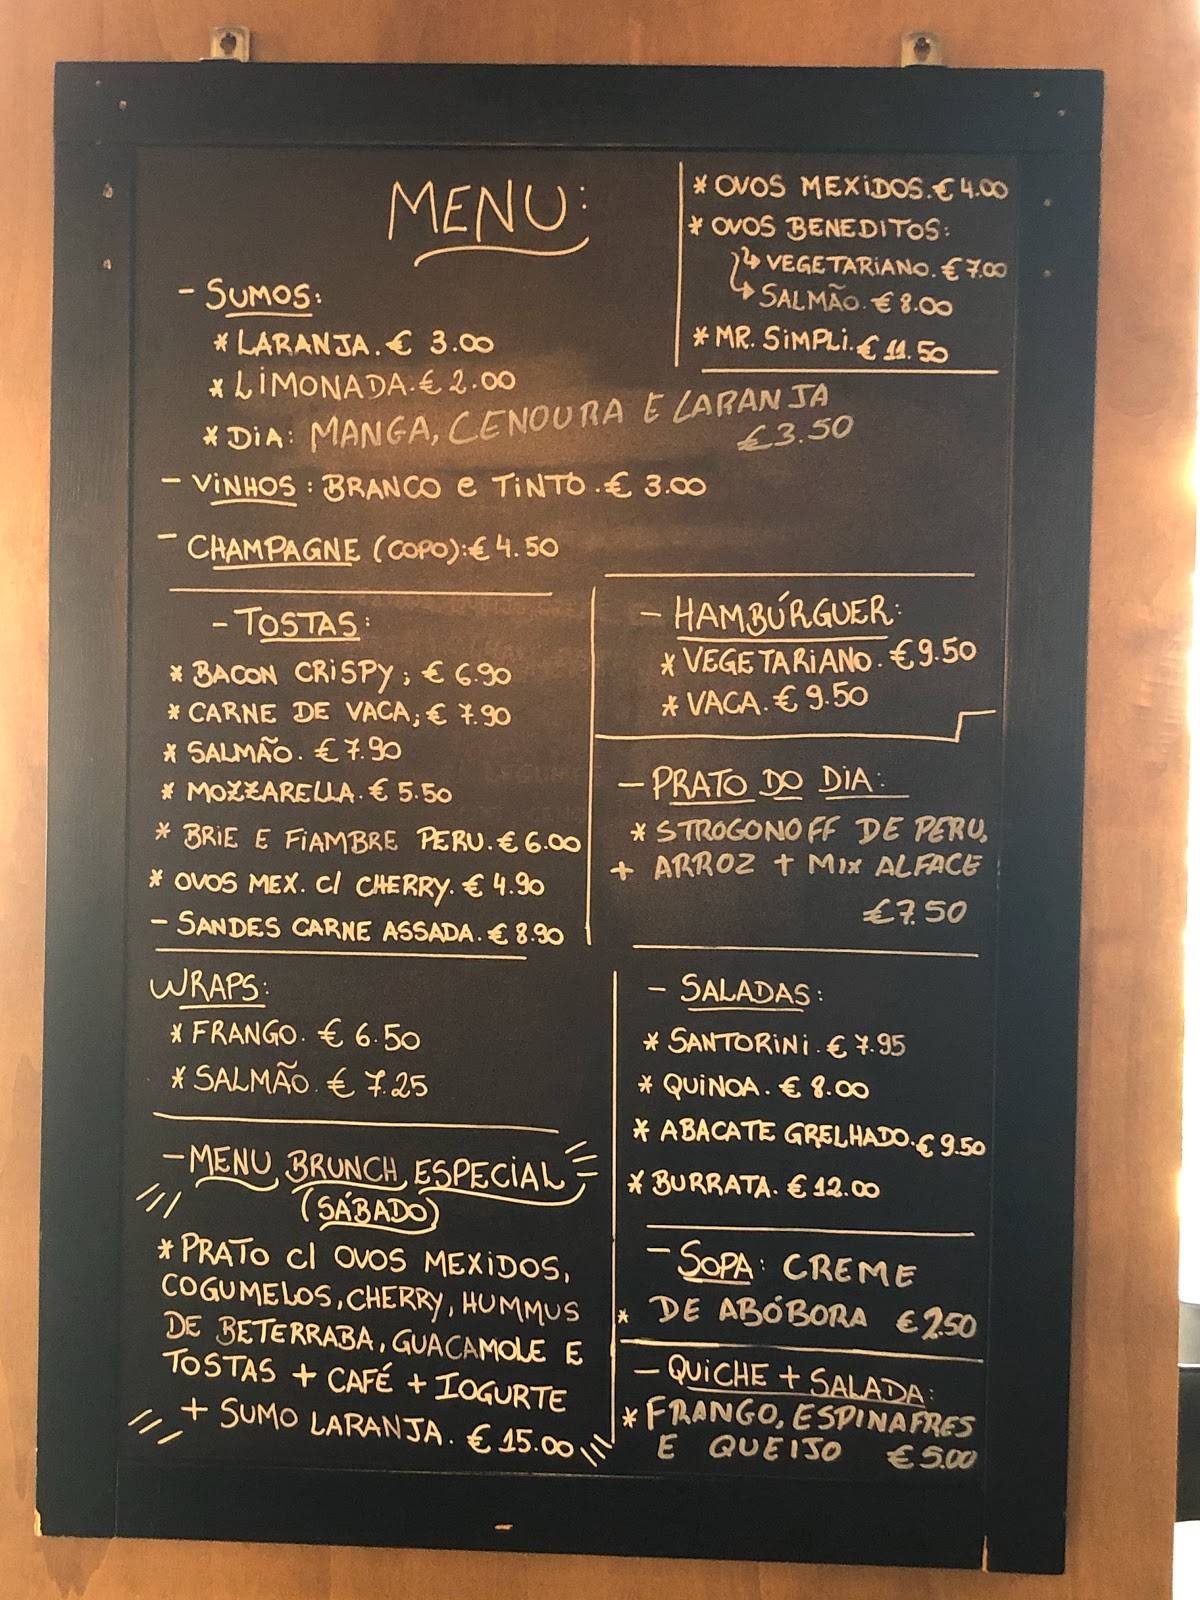 MENU:
* OVOS MEXIDOS. € 4.00
* OVOS BENEDITOS:
VEGETARIANO. € 7.00
SALMÃO. € 8.00
* MR. SIMPLI. € 11.50
- SUMOS:
* LARANJA. € 3.00
* LIMONADA. € 2.00
* DIA: MANGA, CENOURA E LARANJA
€3.50
- VINHOS: BRANCO e TINTO. € 3.00
- CHAMPAGNE (COPO): € 4.50
- TOSTAS:
* BACON CRISPY; € 6.90
* CARNE DE VACA; € 7.90
* SALMÃO. € 7.90
* MOZZARELLA. € 5.50
* BRIE E FIAMBRE PERU. € 6.00
* OVOS MEX. C/ CHERRY. € 4.90
- SANDES CARNE ASSADA. € 8.90
- HAMBÚRGUER:
* VEGETARIANO. € 9.50
* VACA. € 9.50
- PRATO DO DIA:
* STROGONOFF DE PERU,
+ ARROZ + MIX ALFACE
€7.50
WRAPS:
* FRANGO. € 6.50
* SALMÃO. € 7.25
- MENU BRUNCH ESPECIAL
(SÁBADO)
* PRATO C/ OVOS MEXIDOS,
COGUMELOS, CHERRY, HUMMUS
DE BETERRABA, GUACAMOLE E
TOSTAS + CAFÉ + IOGURTE
+ SUMO LARANJA. € 15.00
- SALADAS:
* SANTORINI. € 7.95
* QUINOA. € 8.00
* ABACATE GRELHADO. € 9.50
* BURRATA. € 12.00
- SOPA: CREME
* DE ABÓBORA € 2.50
- QUICHE + SALADA:
* FRANGO, ESPINAFRES
E QUEIJO € 5.00